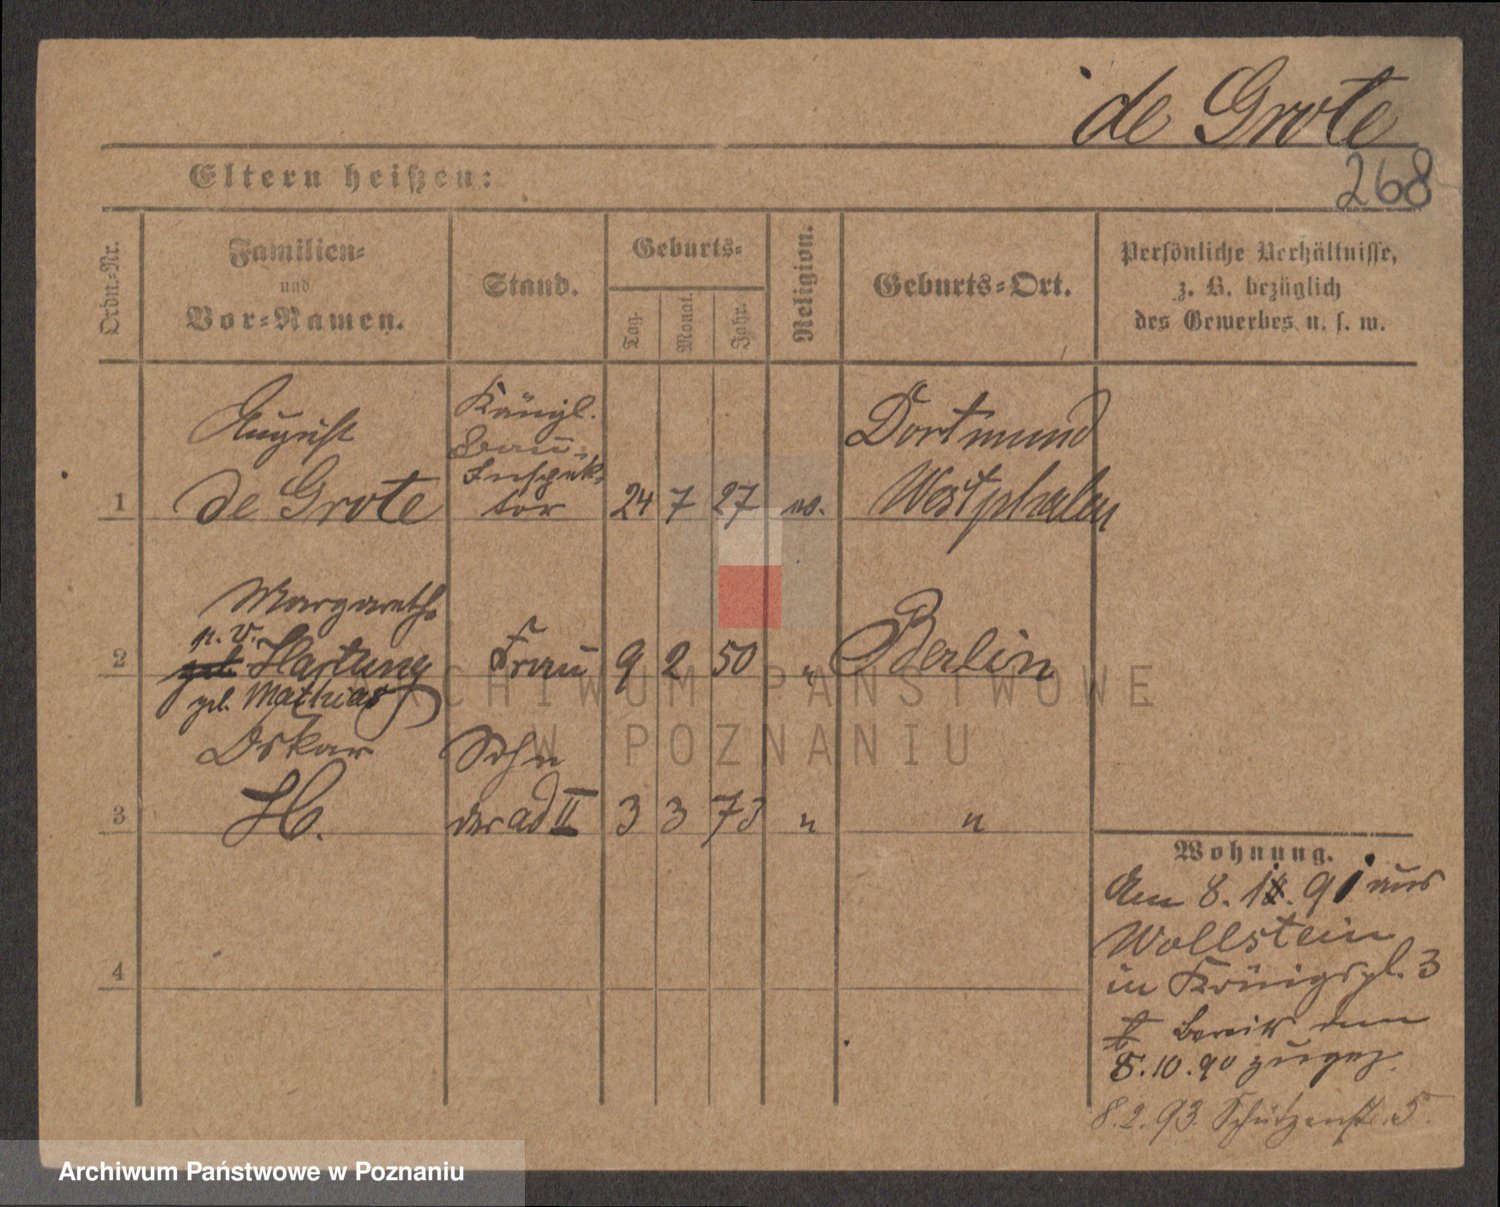 de Grote
268
Eltern heißen:
Ordn.-Nr.
Familien-
und
Vor-Namen.
Stand.
Geburts-
Tag.
Monat.
Jahr.
Religion.
Geburts-Ort.
Persönliche Verhältnisse,
z. B. bezüglich
des Gewerbes u. s. w.
1
August
de Grote
Königl.
Bau-
Inspek-
tor
24 7 27
Dortmund
Westphalen
2
Margarethe
v.
geb. Hartung
geb. Mathias
Frau
9 2 50
"
Berlin
3
Oskar
H.
Sohn
der ad II
3 3 73
"
"
4
Wohnung.
Am 8. 91 aus
Wollstein
in Königspl. 3
bereits am
8.10.90 zugez.
8.2.93. Schützenstr. 5.
ARCHIWUM PAŃSTWOWE
W POZNANIU
Archiwum Państwowe w Poznaniu